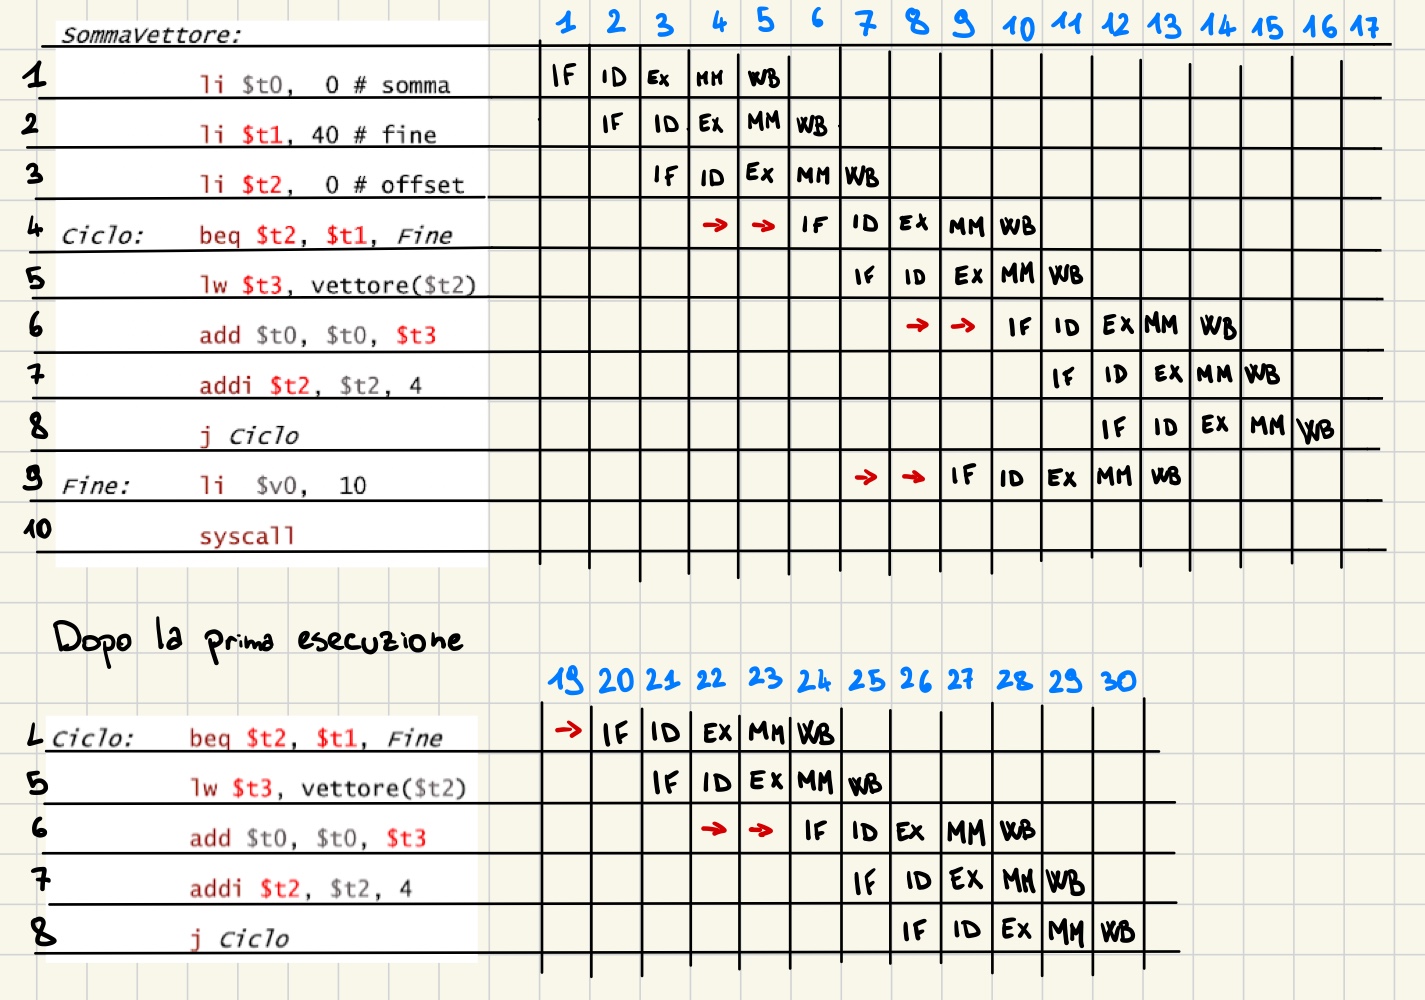 SommaVettore: 1 2 3 4 5 6 7 8 9 10 11 12 13 14 15 16 17
1 li $t0, 0 # somma IF ID EX MM WB
2 li $t1, 40 # fine IF ID EX MM WB
3 li $t2, 0 # offset IF ID EX MM WB
4 Ciclo: beq $t2, $t1, Fine → → IF ID EX MM WB
5 lw $t3, vettore($t2) IF ID EX MM WB
6 add $t0, $t0, $t3 → → IF ID EX MM WB
7 addi $t2, $t2, 4 IF ID EX MM WB
8 j Ciclo IF ID EX MM WB
9 Fine: li $v0, 10 → → IF ID EX MM WB
10 syscall
Dopo la prima esecuzione
19 20 21 22 23 24 25 26 27 28 29 30
4 Ciclo: beq $t2, $t1, Fine → IF ID EX MM WB
5 lw $t3, vettore($t2) IF ID EX MM WB
6 add $t0, $t0, $t3 → → IF ID EX MM WB
7 addi $t2, $t2, 4 IF ID EX MM WB
8 j Ciclo IF ID EX MM WB